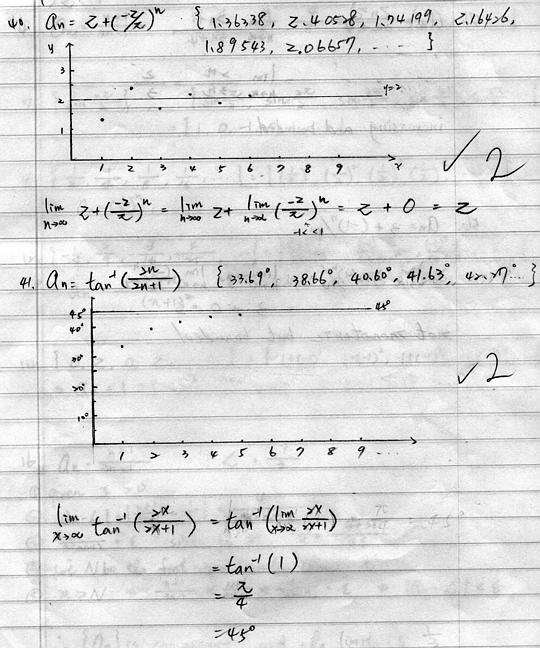 40. an = 2+(-2/π)^n { 1.36338, 2.40528, 1.74199, 2.16426,
1.89543, 2.06657, ..... }
y
3
2
y=2
1
1 2 3 4 5 6 7 8 9 x
✓ 2
lim n→∞ 2+(-2/π)^n = lim n→∞ 2+ lim n→∞ (-2/π)^n = 2 + 0 = 2
41. an = tan⁻¹(2n/2n+1) { 33.69°, 38.66°, 40.60°, 41.63°, 42.27°... }
45°
45°
40°
30°
20°
10°
✓ 2
1 2 3 4 5 6 7 8 9 ...
lim x→∞ tan⁻¹(2x/2x+1) = tan⁻¹(lim x→∞ 2x/2x+1)
= tan⁻¹(1)
= π/4
= 45°